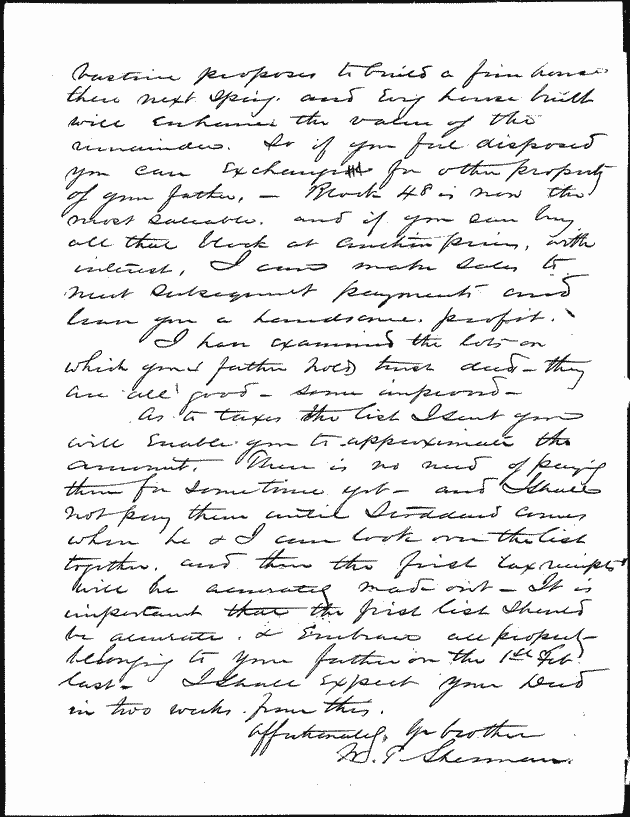 Vastine proposes to build a fine house
there next Spring. and Evry house built
will enhance the value of the
remainder. So if you feel disposed
you can Exchange for other property
of your father, — Block 48 is now the
most saleable. and if you can buy
all that block at auction prices, with
interest, I can make sales to
meet subsequent payments and
leave you a handsome profit.
I have examined the lots on
which you & father hold trust deed — they
are all good — some improved —
As to taxes the list I sent you
will Enable you to approximate the
amount. There is no need of paying
them for some time yet — and I shall
not pay them until Stoddard comes
when he & I can look over the list
together. and then the first tax receipts
will be accurately made out — It is
important that the first list should
be accurate. & Embrace all property
belonging to your father on the 1st Feb.
last — I shall Expect your Deed
in two weeks from this.
Affectionately, Yr brother
W. T Sherman.